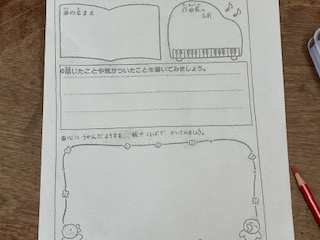 曲のなまえ
作曲家の
名前
◎感じたことや気がついたことを書いてみましょう。
◎心にうかんだようすを、絵やことばで、かいてみましょう。